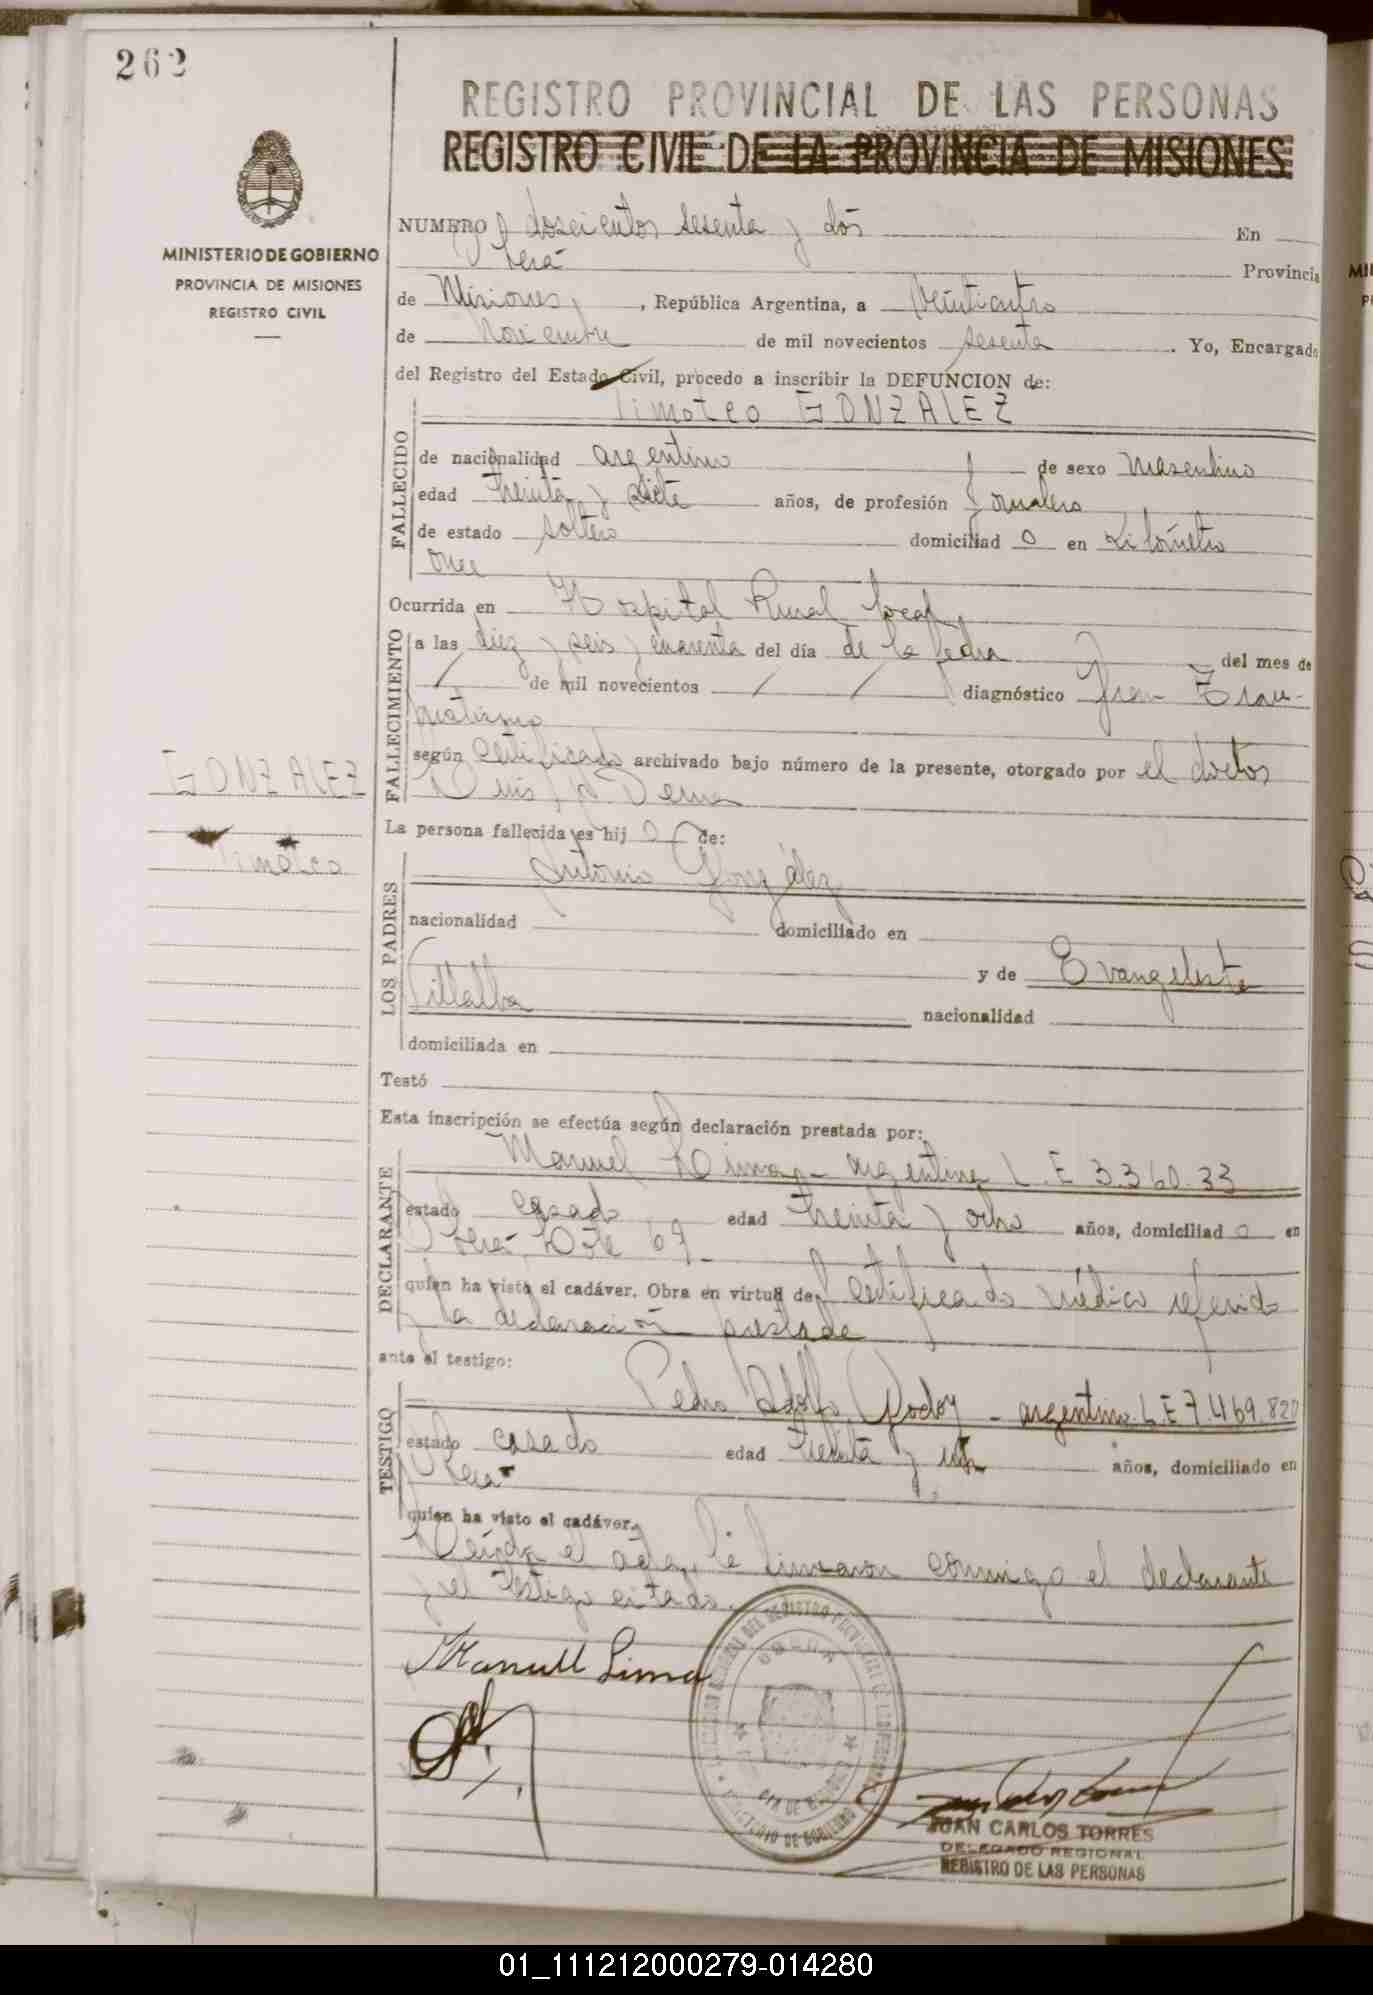 262
REGISTRO PROVINCIAL DE LAS PERSONAS
REGISTRO CIVIL DE LA PROVINCIA DE MISIONES
MINISTERIO DE GOBIERNO
PROVINCIA DE MISIONES
REGISTRO CIVIL
NUMERO doscientos sesenta y dos En
Oberá Provincia
de Misiones, , República Argentina, a veinticuatro
de noviembre de mil novecientos sesenta . Yo, Encargado
del Registro del Estado Civil, procedo a inscribir la DEFUNCION de:
Timoteo GONZALEZ
FALLECIDO
de nacionalidad argentino de sexo masculino
edad treinta y siete años, de profesión jornalero
de estado soltero domiciliad o en Kilómetro
once
Ocurrida en Hospital Rural local,
FALLECIMIENTO
a las diez y seis y cuarenta del día de la fecha del mes de
de mil novecientos diagnóstico Gran Trau-
matismo
según certificado archivado bajo número de la presente, otorgado por el doctor
Luis
GONZALEZ
Timoteo
La persona fallecida es hij o de:
LOS PADRES
Antonio González
nacionalidad domiciliado en
y de Evangelista
Villalba nacionalidad
domiciliada en
Testó
Esta inscripción se efectúa según declaración prestada por:
DECLARANTE
Manuel Lima - argentino L.E 3.360.33
estado casado edad treinta y ocho años, domiciliad o en
Oberá, Lote 69 -
quien ha visto el cadáver. Obra en virtud de certificado médico referido
y la declaración prestada
ante el testigo:
TESTIGO
Pedro Adolfo Godoy - argentino L.E 7.469.820
estado casado edad treinta y un años, domiciliado en
Oberá
quien ha visto el cadáver.
Leída el acta, la firmaron conmigo el declarante
y el testigo citado.
Manuel Lima
JUAN CARLOS TORRES
DELEGADO REGIONAL
REGISTRO DE LAS PERSONAS
01_111212000279-014280